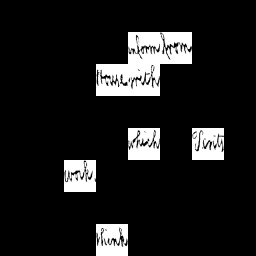 inform from
House with
which Visits
work
think